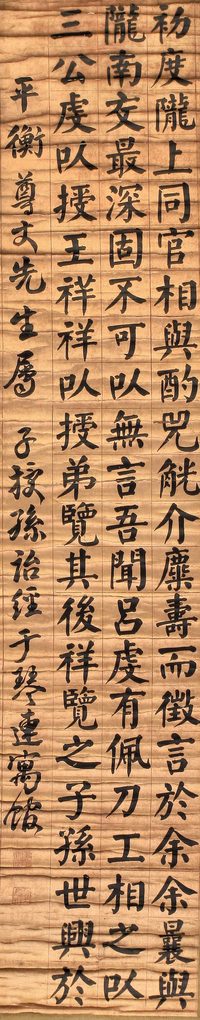 初度隴上同官相與酌兕觥介麋壽而徵言於余余曩與
隴南交最深固不可以無言吾聞呂虔有佩刀工相之以
三公虔以授王祥祥以授弟覽其後祥覽之子孫世興於
平衡尊丈先生屬 子授孫詒經于琴連寓館